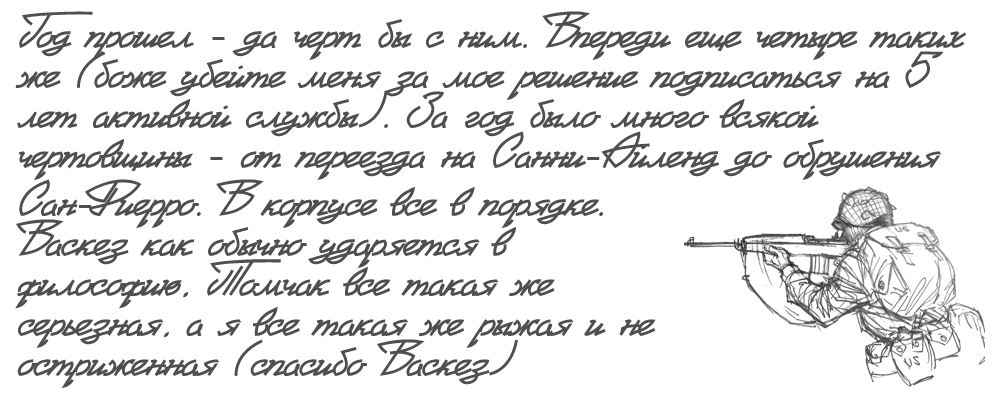 Год прошел - да черт бы с ним. Впереди еще четыре таких
же (боже убейте меня за мое решение подписаться на 5
лет активной службы). За год было много всякой
чертовщины - от переезда на Санни-Айленд до обрушения
Сан-Фиерро. В корпусе все в порядке.
Васкез как обычно ударяется в
философию. Томчак все такая же
серьезная. а я все такая же рыжая и не
остриженная (спасибо Васкез)
US
US